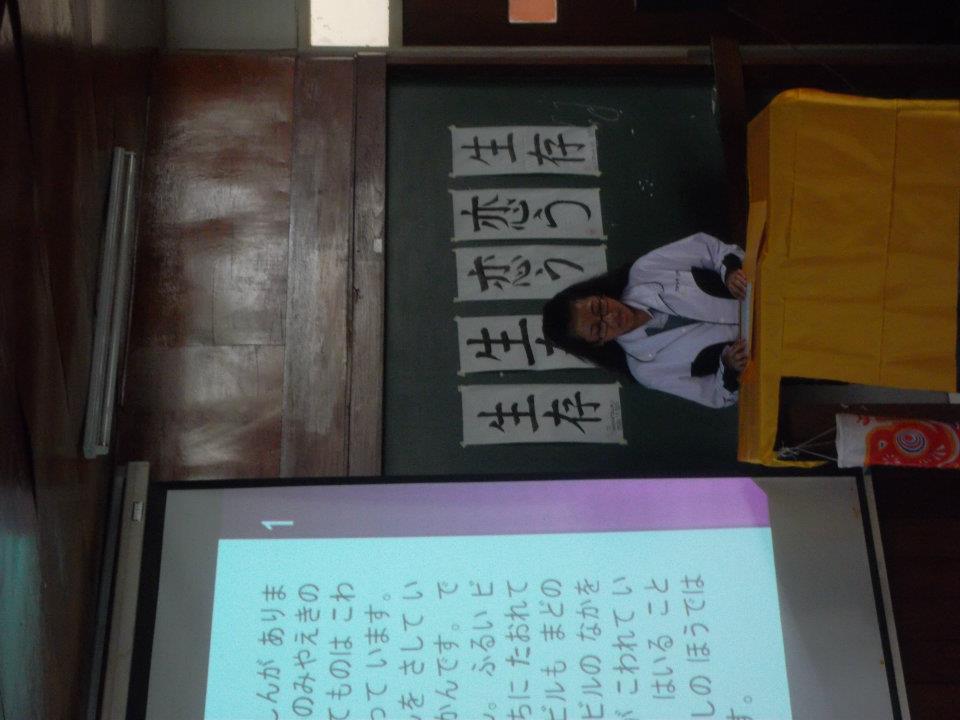 1
んが ありま
のみやえきの
てものは こわ
って います。
を さして い
かんです。 で
。 ふるい ビ
ちに たおれて
ビルも まどの
ビルの なかを
が こわれて い
はいる こと
しの ほうでは
す。
生存
生
恋う
恋う
生存